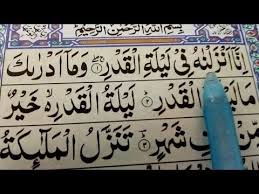 بِسْمِ اللهِ الرَّحْمٰنِ الرَّحِيْمِ
اِنَّاۤ اَنْزَلْنٰهُ فِیْ لَیْلَةِ الْقَدْرِ ۚۖ ۝۱ وَمَاۤ اَدْرٰىكَ
مَا لَیْلَةُ الْقَدْرِ ؕ ۝۲ لَیْلَةُ الْقَدْرِ ۙ۬ خَیْرٌ
مِّنْ اَلْفِ شَهْرٍ ؕ ۝۳ تَنَزَّلُ الْمَلٰٓىِٕكَةُ